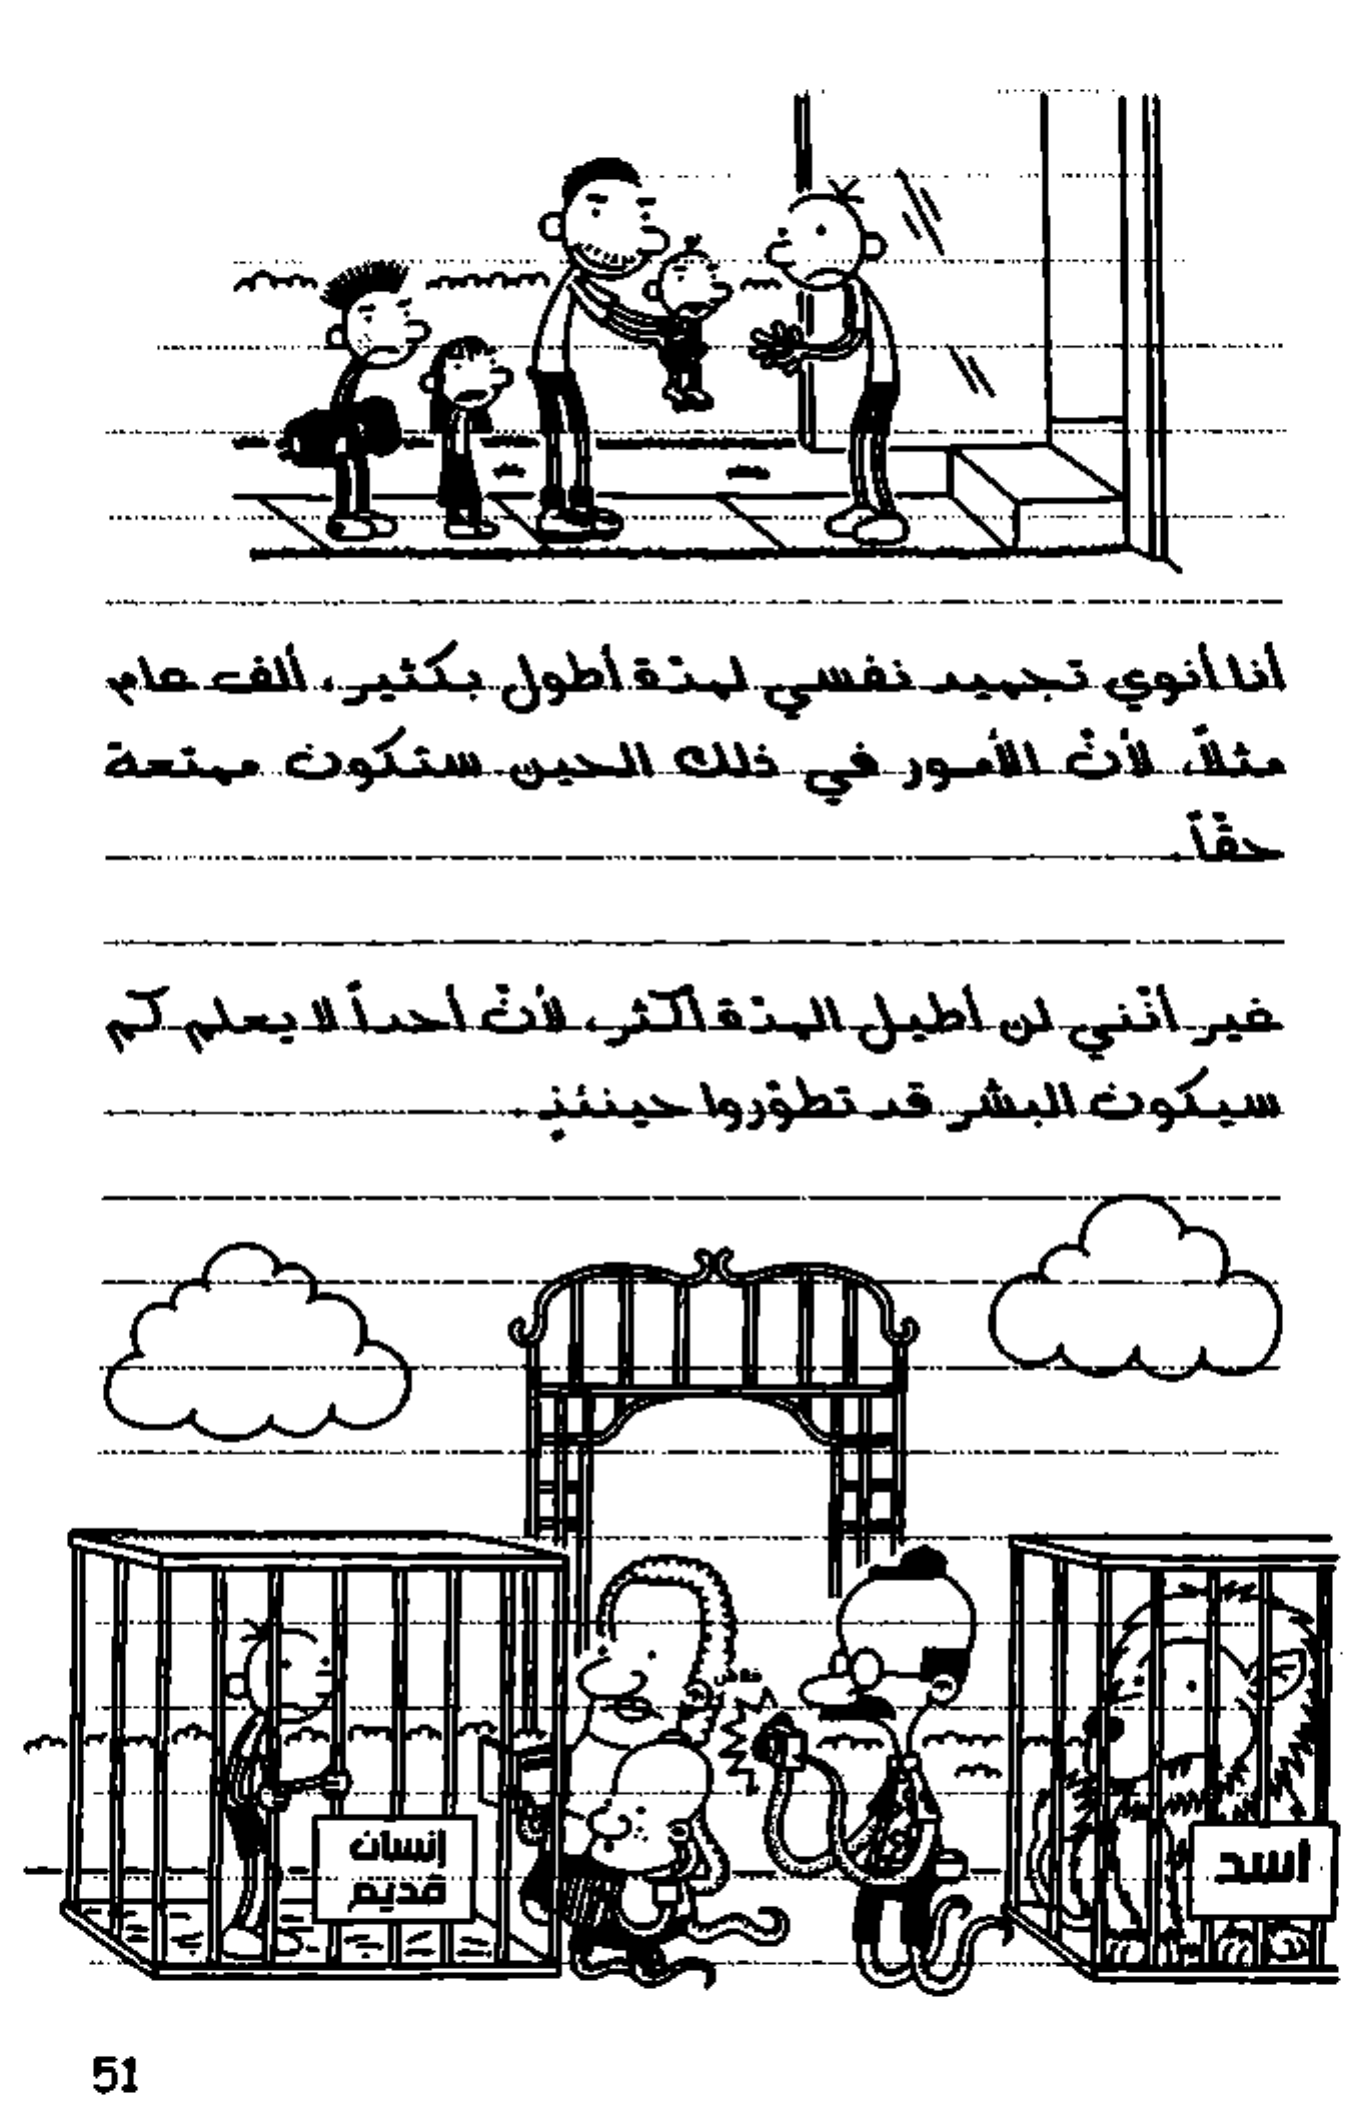 أنا أنوي تجميد نفسي لمدّة أطول بكثير، ألف عام
مثلاً، لأنّ الأمور في ذلك الحين ستكون ممتعة
حقّاً.
غير أنّني لن أطيل المدّة أكثر، لأنّ أحداً لا يعلم كم
سيكون البشر قد تطوّروا حينئذٍ.
إنسان
قديم
أسد
51